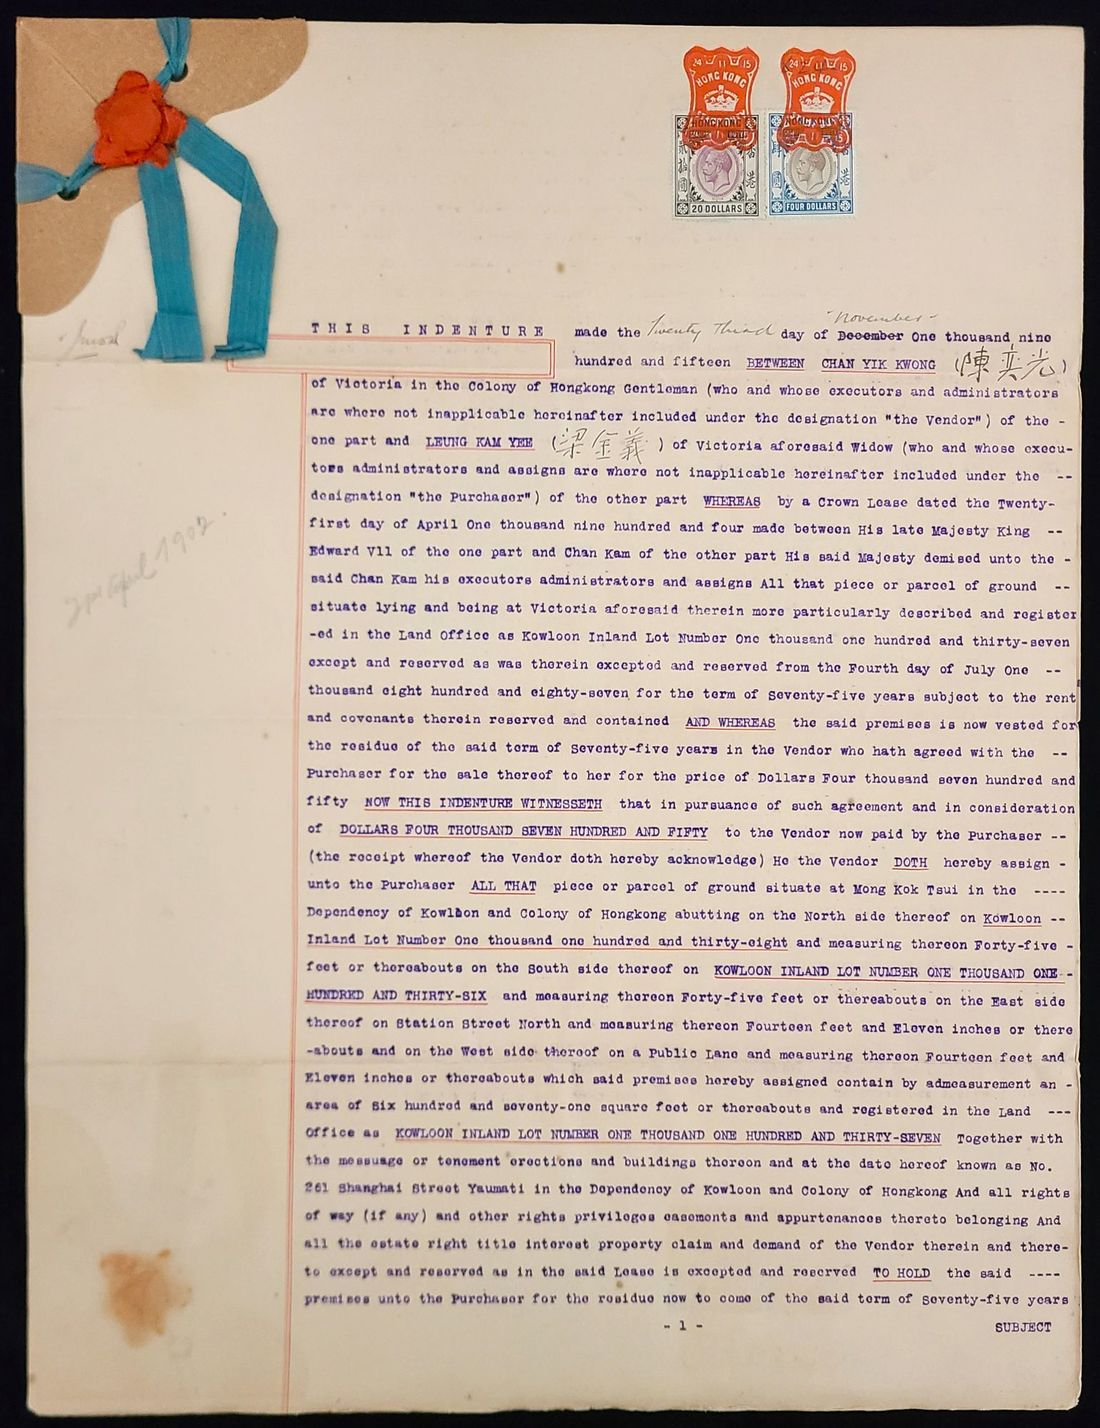 24 11 15
HONG KONG
24 11 15
HONG KONG
HONG KONG
貳拾圓
香港
20 DOLLARS
HONG KONG
肆圓
香港
FOUR DOLLARS
November
THIS INDENTURE made the Twenty Third day of December One thousand nine
hundred and fifteen BETWEEN CHAN YIK KWONG (陳奕光)
of Victoria in the Colony of Hongkong Gentleman (who and whose executors and administrators
are where not inapplicable hereinafter included under the designation "the Vendor") of the -
one part and LEUNG KAM YEE (梁金義) of Victoria aforesaid Widow (who and whose execu-
tors administrators and assigns are where not inapplicable hereinafter included under the --
designation "the Purchaser") of the other part WHEREAS by a Crown Lease dated the Twenty-
first day of April One thousand nine hundred and four made between His late Majesty King --
Edward V11 of the one part and Chan Kam of the other part His said Majesty demised unto the -
said Chan Kam his executors administrators and assigns All that piece or parcel of ground --
situate lying and being at Victoria aforesaid therein more particularly described and register
-ed in the Land Office as Kowloon Inland Lot Number One thousand one hundred and thirty-seven
except and reserved as was therein excepted and reserved from the Fourth day of July One --
thousand eight hundred and eighty-seven for the term of Seventy-five years subject to the rent
and covenants therein reserved and contained AND WHEREAS the said premises is now vested for
the residue of the said term of Seventy-five years in the Vendor who hath agreed with the --
Purchaser for the sale thereof to her for the price of Dollars Four thousand seven hundred and
fifty NOW THIS INDENTURE WITNESSETH that in pursuance of such agreement and in consideration
of DOLLARS FOUR THOUSAND SEVEN HUNDRED AND FIFTY to the Vendor now paid by the Purchaser --
(the receipt whereof the Vendor doth hereby acknowledge) He the Vendor DOTH hereby assign -
unto the Purchaser ALL THAT piece or parcel of ground situate at Mong Kok Tsui in the ----
Dependency of Kowloon and Colony of Hongkong abutting on the North side thereof on Kowloon --
Inland Lot Number One thousand one hundred and thirty-eight and measuring thereon Forty-five -
feet or thereabouts on the South side thereof on KOWLOON INLAND LOT NUMBER ONE THOUSAND ONE -
HUNDRED AND THIRTY-SIX and measuring thereon Forty-five feet or thereabouts on the East side
thereof on Station Street North and measuring thereon Fourteen feet and Eleven inches or there
-abouts and on the West side thereof on a Public Lane and measuring thereon Fourteen feet and
Eleven inches or thereabouts which said premises hereby assigned contain by admeasurement an -
area of Six hundred and seventy-one square feet or thereabouts and registered in the Land ---
Office as KOWLOON INLAND LOT NUMBER ONE THOUSAND ONE HUNDRED AND THIRTY-SEVEN Together with
the messuage or tenement erections and buildings thereon and at the date hereof known as No.
261 Shanghai Street Yaumati in the Dependency of Kowloon and Colony of Hongkong And all rights
of way (if any) and other rights privileges easements and appurtenances thereto belonging And
all the estate right title interest property claim and demand of the Vendor therein and there-
to except and reserved as in the said Lease is excepted and reserved TO HOLD the said ----
premises unto the Purchaser for the residue now to come of the said term of Seventy-five years
- 1 -
SUBJECT
April 1902.